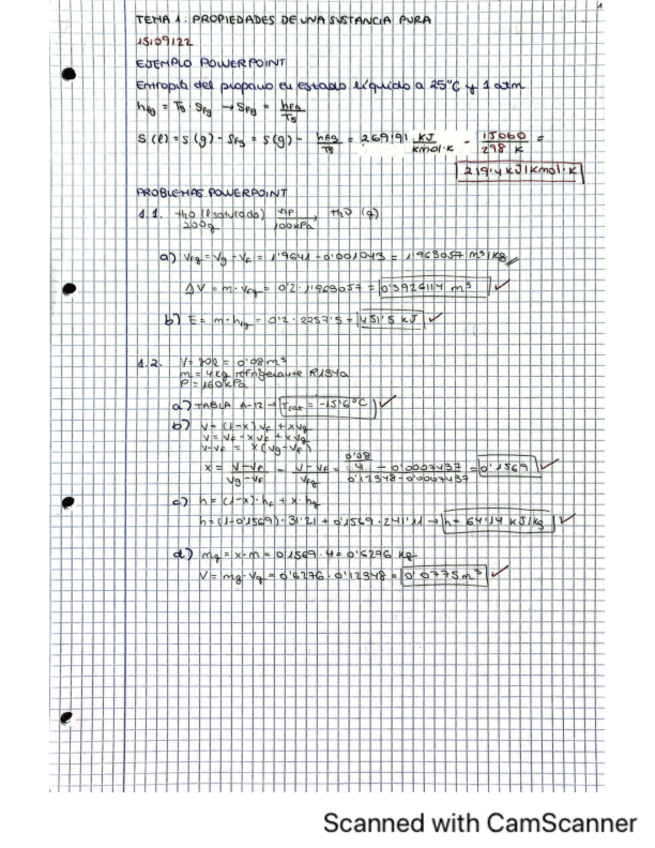 TEMA 1: PROPIEDADES DE UNA SUSTANCIA PURA
15/09/22
EJEMPLO POWERPOINT
Entropía del propano en estado líquido a 25°C y 1 atm
hfg = Ts · Sfg → Sfg = hfg/Ts
S(l) = S(g) - Sfg = S(g) - hfg/Ts = 269'91 KJ/kmol·K - 15060/298 K =
219'4 KJ/Kmol·K
PROBLEMAS POWERPOINT
1.1. H2O (l saturado) 200g → 100kPa H2O (g)
a) Vfg = Vg - Vf = 1'9641 - 0'001043 = 1'963057 m³/kg
ΔV = m·Vfg = 0'2 · 1'963057 = 0'3926114 m³ ✓
b) E = m·hfg = 0'2 · 2257'5 = 451'5 KJ ✓
1.2. V = 80l = 0'08 m³
m = 4kg refrigerante R134a
P = 160kPa
a) TABLA A-12 → Tsat = -15'6°C ✓
b) V = (1-x)Vf + xVg
V = Vf - xVf + xVg
V-Vf = x(Vg-Vf)
x = (V-Vf)/(Vg-Vf) = (V-Vf)/Vfg = (0'08/4 - 0'0007437)/(0'12348 - 0'0007437) = 0'1569 ✓
c) h = (1-x)·hf + x·hg
h = (1-0'1569)·31'21 + 0'1569·241'11 → h = 64'14 KJ/kg ✓
d) mg = x·m = 0'1569·4 = 0'6276 kg
V = mg·Vg = 0'6276·0'12348 = 0'0775 m³ ✓
Scanned with CamScanner